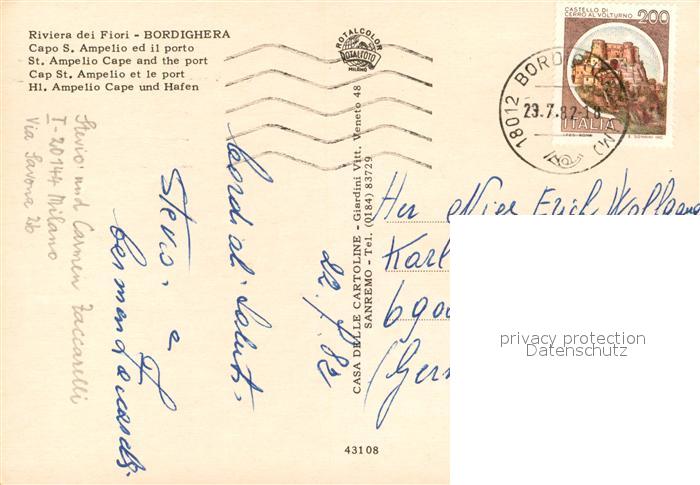 Riviera dei Fiori - BORDIGHERA
Capo S. Ampelio ed il porto
St. Ampelio Cape and the port
Cap St. Ampelio et le port
Hl. Ampelio Cape und Hafen
ROTALCOLOR
ROTALFOTO
MILANO
CASTELLO DI
CERRO AL VOLTURNO
200
ITALIA
18012 BORDIGHERA (IM)
23.7.82-18
Cordiali saluti
Stevio e
Carmen Zaccarelli
22.7.82
Stevio und Carmen Zaccarelli
I-20144 Milano
Via Savona 26
CASA DELLE CARTOLINE - Giardini Vitt. Veneto 48
SANREMO - Tel. (0184) 83729
Her Nier Erich Wolfgang
Karl
690
(Ger
43108
privacy protection
Datenschutz